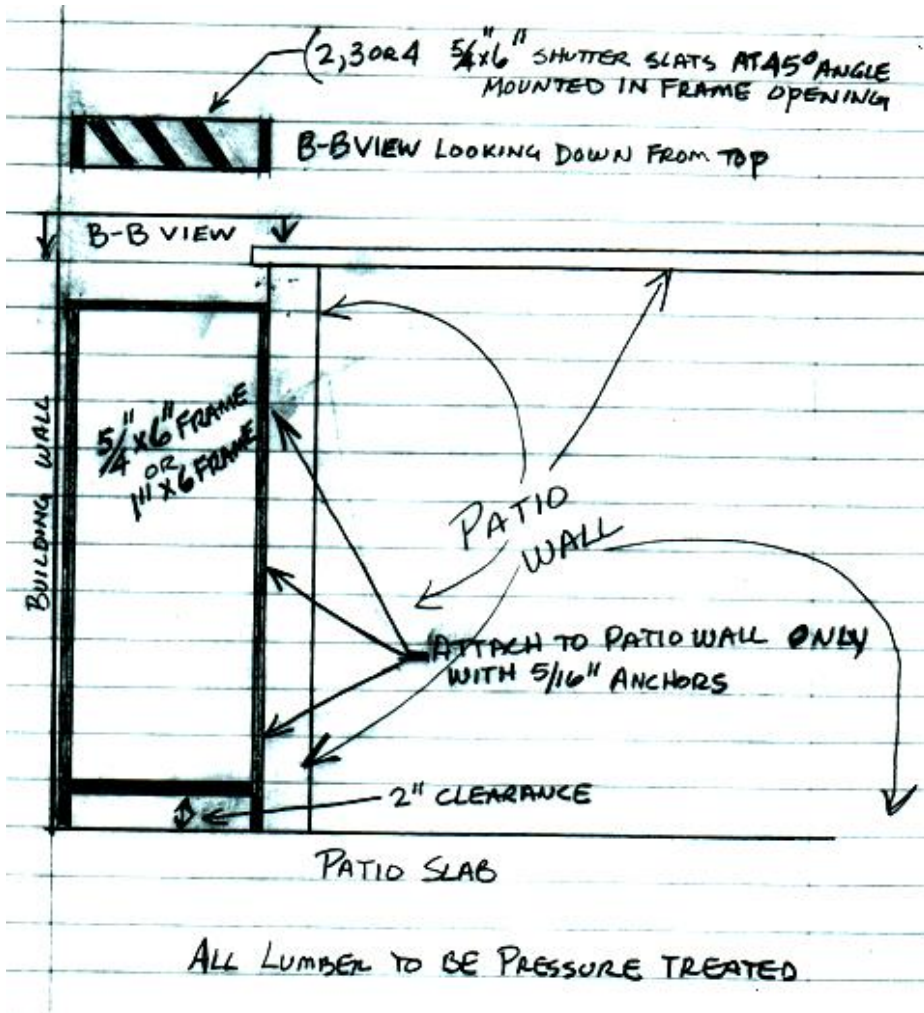 (2,3 OR 4 5/4"x6" SHUTTER SLATS AT 45° ANGLE
MOUNTED IN FRAME OPENING
B-B VIEW LOOKING DOWN FROM TOP
B-B VIEW
BUILDING WALL
5/4"x6" FRAME
OR
1"x6 FRAME
PATIO
WALL
ATTACH TO PATIO WALL ONLY
WITH 5/16" ANCHORS
2" CLEARANCE
PATIO SLAB
ALL LUMBER TO BE PRESSURE TREATED